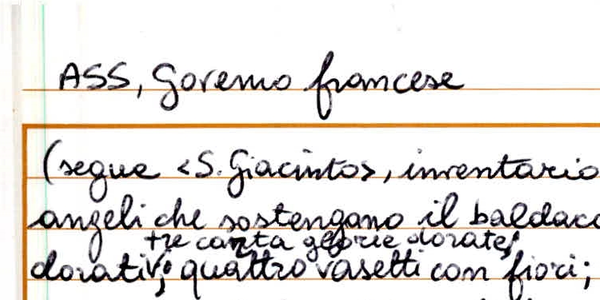 ASS, Governo francese
(segue <S. Giacinto>, inventario
angeli che sostengano il baldacc
tre canta glorie dorate;
dorativi; quattro vasetti con fiori;